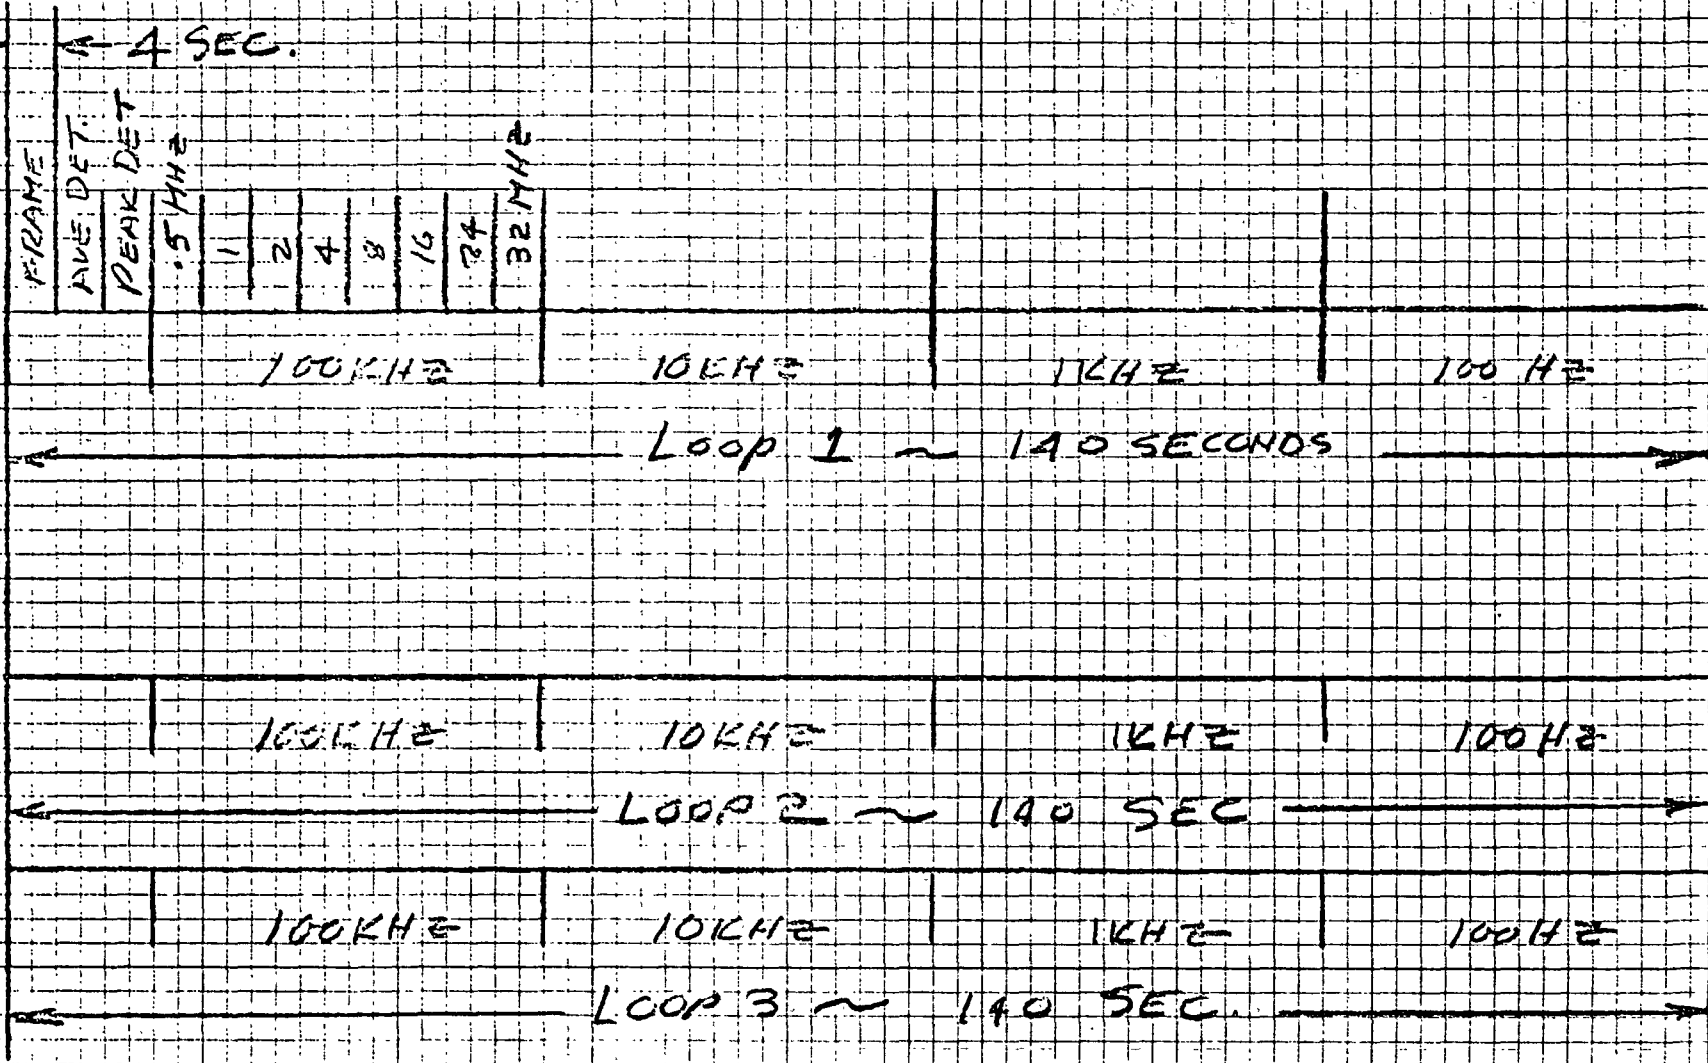 4 SEC.
FRAME
AVE. DET.
PEAK DET
.5 MHZ
1
2
4
8
16
24
32 MHZ
100KHZ 10KHZ 1KHZ 100 HZ
LOOP 1 ~ 140 SECONDS
100KHZ 10KHZ 1KHZ 100HZ
LOOP 2 ~ 140 SEC
100KHZ 10KHZ 1KHZ 100HZ
LOOP 3 ~ 140 SEC.